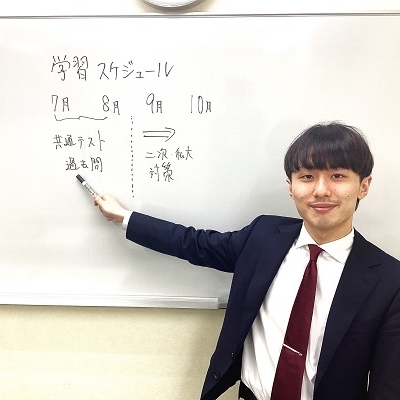 学習 スケジュール
7月 8月 9月 10月
共通テスト
過去問
二次・私大
対策